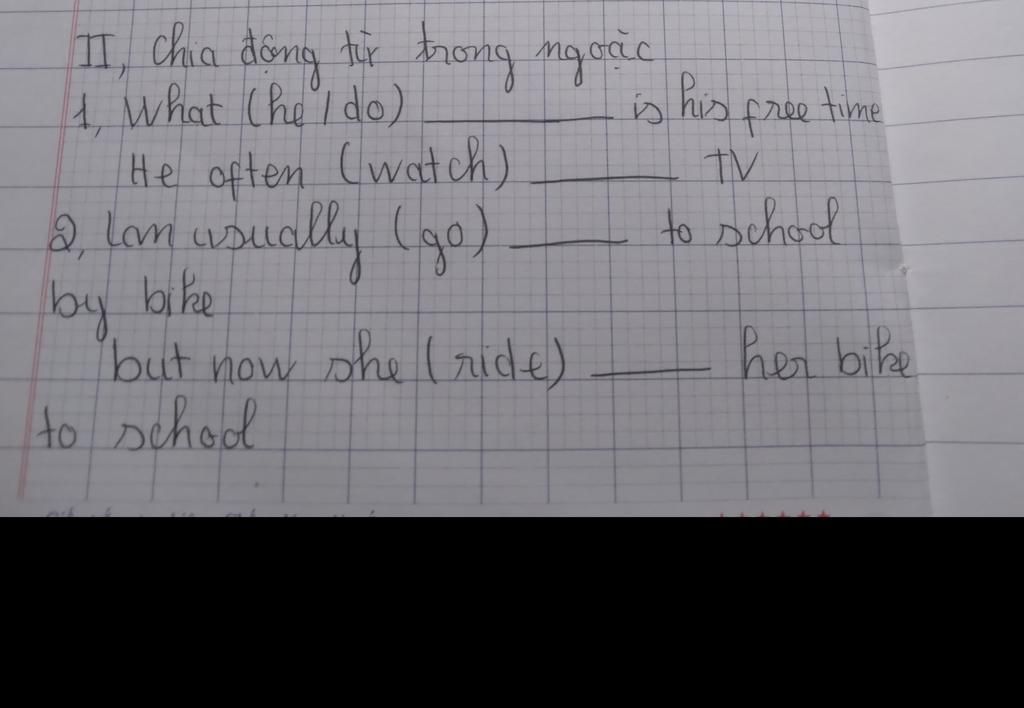 II, Chia động từ trong ngoặc
1, What (he / do) ________ is his free time
He often (watch) ______ TV
2, Lan usually (go) _____ to school
by bike
but now she (ride) _____ her bike
to school